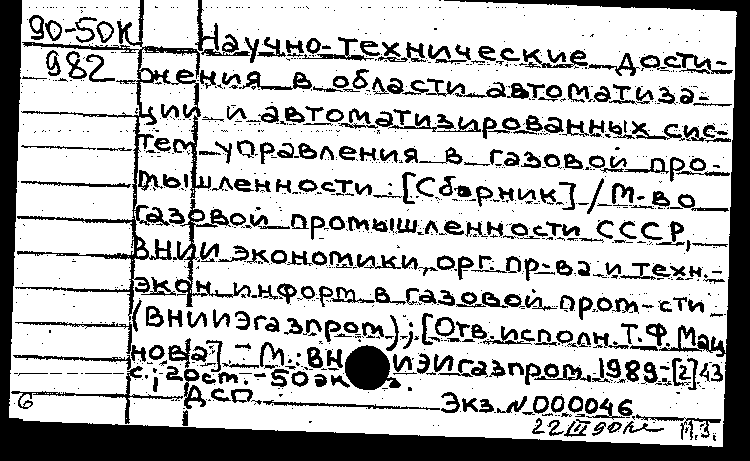 90-50К
982
Научно-технические дости-
жения в области автоматиза-
ции и автоматизированных сис-
тем управления в газовой про-
мышленности : [Сборник] / М-во
газовой промышленности СССР,
ВНИИ экономики, орг. пр-ва и техн.-
экон. информ. в газовой пром-сти
(ВНИИЭгазпром) ; [Отв. исполн. Т.Ф. Мац
нова] - М. : ВН ИЭИгазпром, 1989.-[2] 43
с.; 20 см. - 50 эк з.
ДСП
Экз. N 000046
6
22 III 90
М.З.